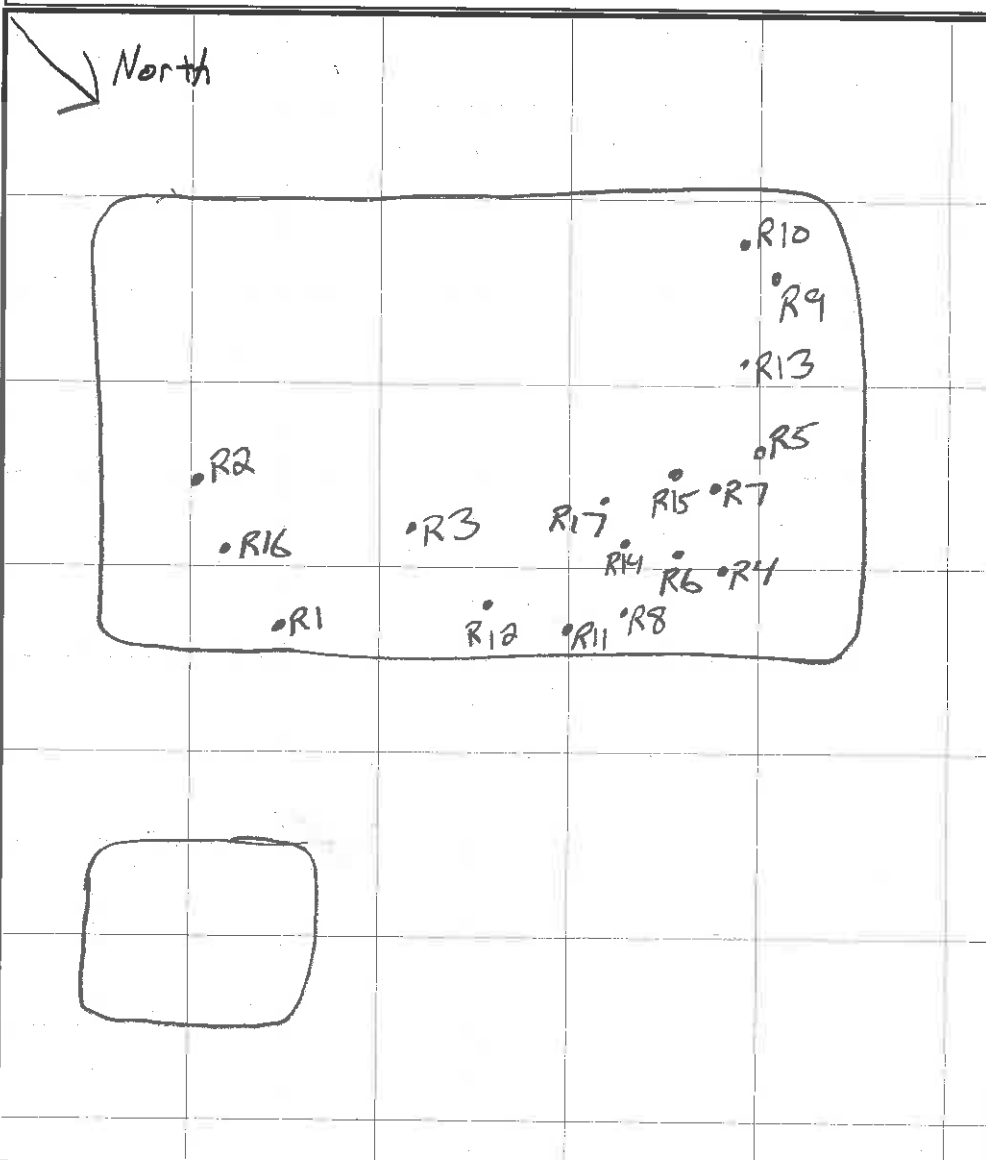 North
R10
R9
R13
R5
R2
R15
R7
R17
R3
R16
R14
R6
R4
R1
R12
R11
R8